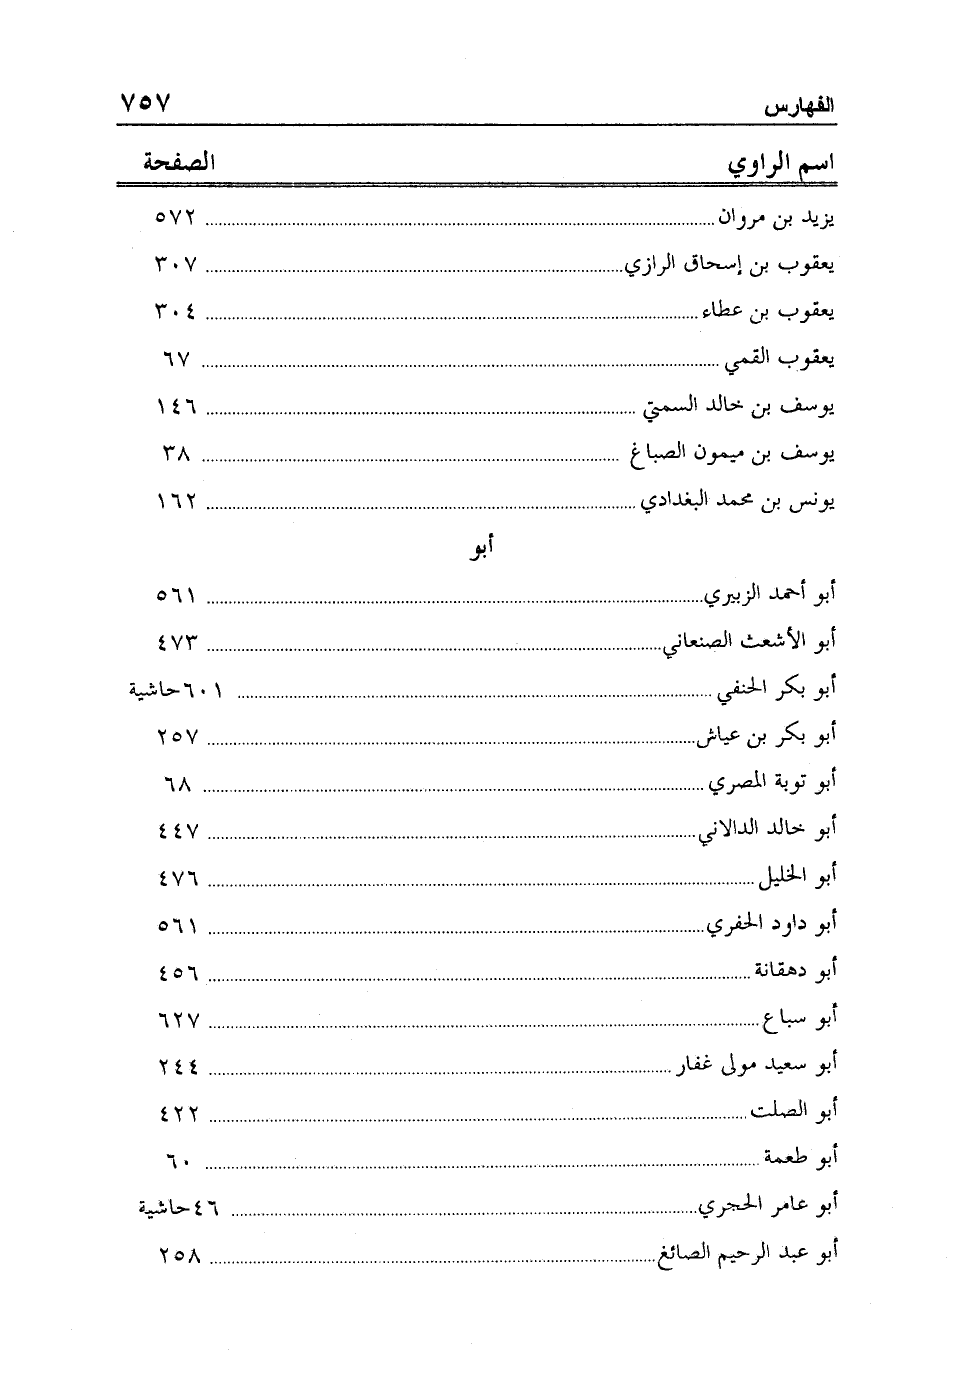 الفهارس ٧٥٧
اسم الراوي الصفحة
يزيد بن مروان ........ ٥٧٢
يعقوب بن إسحاق الرازي ........ ٣٠٧
يعقوب بن عطاء ........ ٣٠٤
يعقوب القمي ........ ٦٧
يوسف بن خالد السمتي ........ ١٤٦
يوسف بن ميمون الصباغ ........ ٣٨
يونس بن محمد البغدادي ........ ١٦٢
أبو
أبو أحمد الزبيري ........ ٥٦١
أبو الأشعث الصنعاني ........ ٤٧٣
أبو بكر الحنفي ........ ٦٠١حاشية
أبو بكر بن عياش ........ ٢٥٧
أبو توبة المصري ........ ٦٨
أبو خالد الدالاني ........ ٤٤٧
أبو الخليل ........ ٤٧٦
أبو داود الحفري ........ ٥٦١
أبو دهقانة ........ ٤٥٦
أبو سباع ........ ٦٢٧
أبو سعيد مولى غفار ........ ٢٤٤
أبو الصلت ........ ٤٢٢
أبو طعمة ........ ٦٠
أبو عامر الحجري ........ ٤٦حاشية
أبو عبد الرحيم الصائغ ........ ٢٥٨